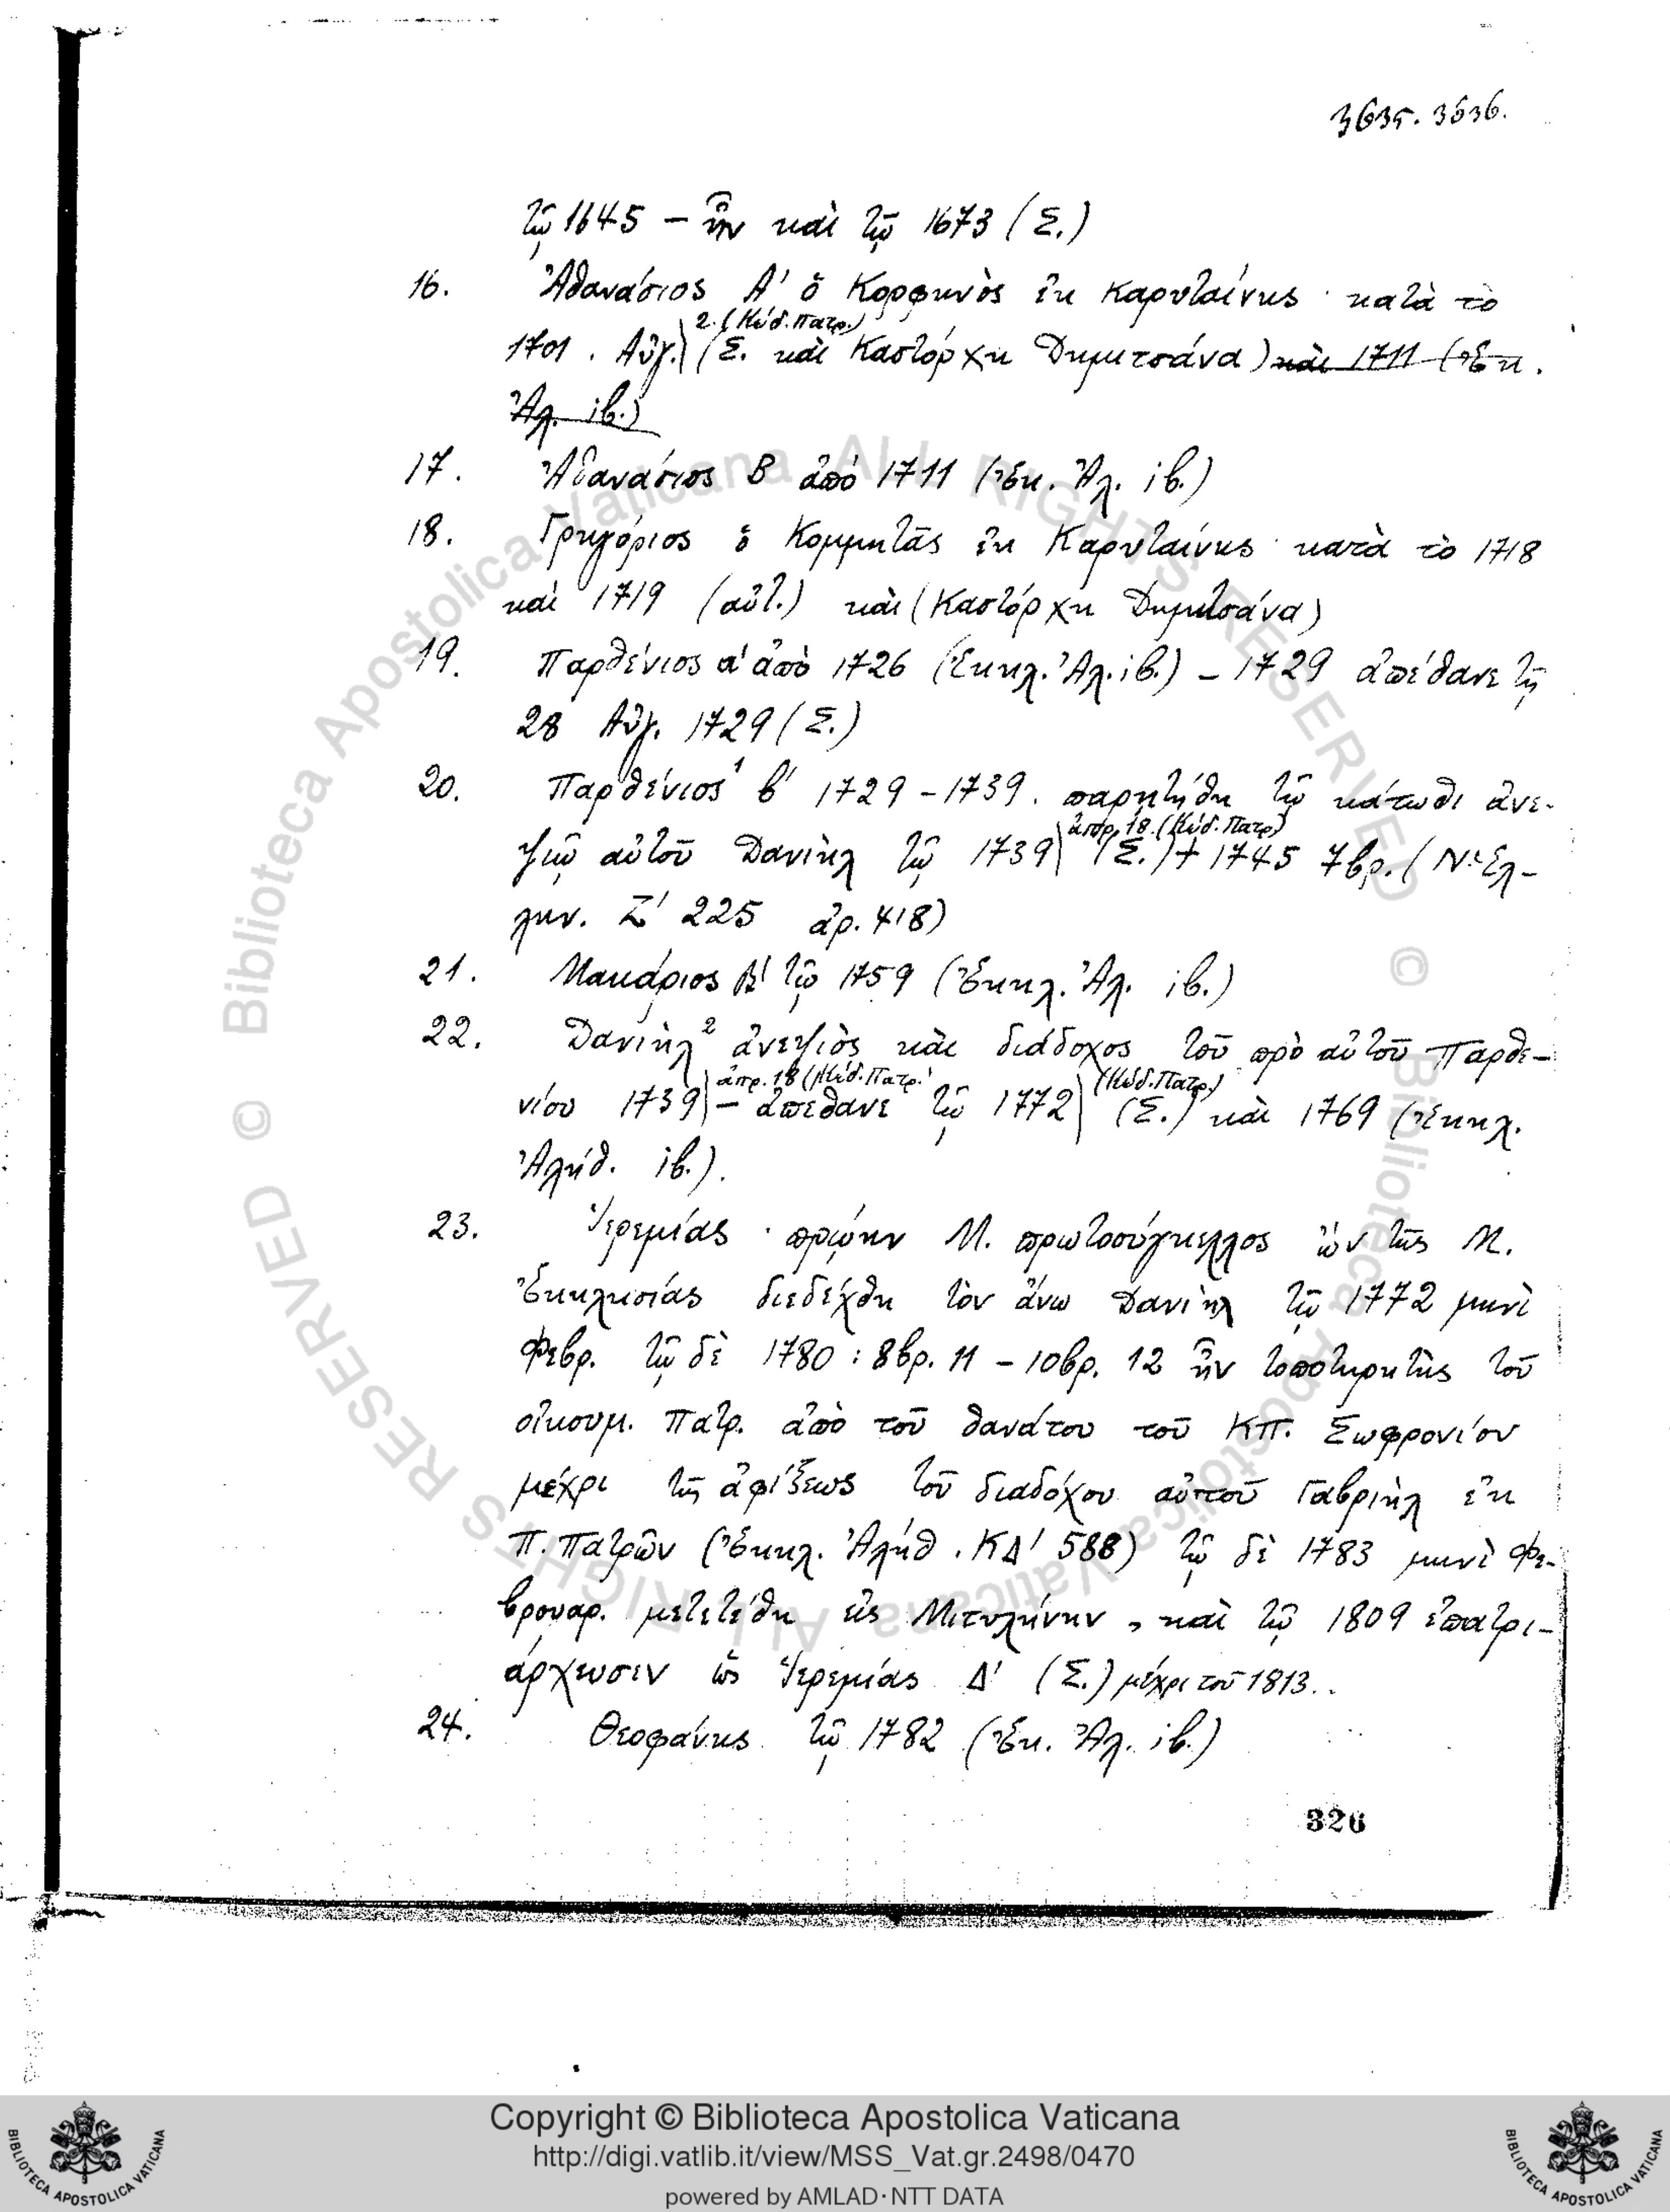 3635. 3636.
τῷ 1645 – ἦν καὶ τῷ 1673 (Σ.)
16. Ἀθανάσιος Α' ὁ Κορφηνὸς ἐκ Καρυταίνης· κατὰ τὸ
2. (Κώδ. Πατρ.)
1701. Αὔγ. (Σ. καὶ Καστόρχη Δημιτσάνα) καὶ 1711 (Ἐκ.
Ἀλ. ἰβ.)
17. Ἀθανάσιος Β ἀπὸ 1711 (Ἐκ. Ἀλ. ἰβ.)
18. Γρηγόριος ὁ Κομμητᾶς ἐκ Καρυταίνης· κατὰ τὸ 1718
καὶ 1719 (αὐτ.) καὶ (Καστόρχη Δημιτσάνα)
19. Παρθένιος α' ἀπὸ 1726 (Ἐκκλ. Ἀλ. ἰβ.) – 1729 ἀπέθανε τῇ
28 Αὔγ. 1729 (Σ.)
20. Παρθένιος¹ β' 1729 – 1739. παρῃτήθη τῷ κάτωθι ἀνε-
ἀπρ. 18. (Κώδ. Πατρ.)
ψιῷ αὐτοῦ Δανιὴλ τῷ 1739 (Σ.) + 1745 7βρ. (Ν. Ἑλ-
λην. Ζ' 225 ἀρ. 418)
21. Μακάριος Β' τῷ 1759 (Ἐκκλ. Ἀλ. ἰβ.)
22. Δανιὴλ² ἀνεψιὸς καὶ διάδοχος τοῦ πρὸ αὐτοῦ Παρθε-
ἀπρ. 18 (Κώδ. Πατρ.) (Κώδ. Πατρ.)
νίου 1739 – ἀπέθανε τῷ 1772 (Σ.) καὶ 1769 (Ἐκκλ.
Ἀλήθ. ἰβ.).
23. Ἱερεμίας· πρῴην Μ. πρωτοσύγκελλος ὢν τῆς Μ.
Ἐκκλησίας διεδέχθη τὸν ἄνω Δανιὴλ τῷ 1772 μηνὶ
Φεβρ. τῷ δὲ 1780 : 8βρ. 11 – 10βρ. 12 ἦν τοποτηρητὴς τοῦ
οἰκουμ. Πατρ. ἀπὸ τοῦ θανάτου τοῦ ΚΠ. Σωφρονίου
μέχρι τῆς ἀφίξεως τοῦ διαδόχου αὐτοῦ Γαβριὴλ ἐκ
Π. Πατρῶν (Ἐκκλ. Ἀλήθ. ΚΔ' 588) τῷ δὲ 1783 μηνὶ Φε-
βρουαρ. μετετέθη εἰς Μιτυλήνην, καὶ τῷ 1809 ἐπατρι-
άρχευσεν ὡς Ἱερεμίας Δ' (Σ.) μέχρι τοῦ 1813..
24. Θεοφάνης τῷ 1782 (Ἐκ. Ἀλ. ἰβ.)
326
© Biblioteca Apostolica Vaticana ALL RIGHTS RESERVED © Biblioteca Apostolica Vaticana ALL RIGHTS RESERVED
Copyright © Biblioteca Apostolica Vaticana
http://digi.vatlib.it/view/MSS_Vat.gr.2498/0470
powered by AMLAD·NTT DATA
BIBLIOTECA APOSTOLICA VATICANA
BIBLIOTECA APOSTOLICA VATICANA